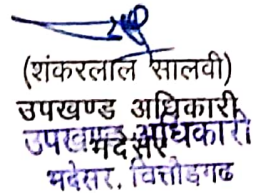 (शंकरलाल सालवी)
उपखण्ड अधिकारी
उपखण्ड अधिकारी
भदेसर
भदेसर, चित्तौड़गढ़